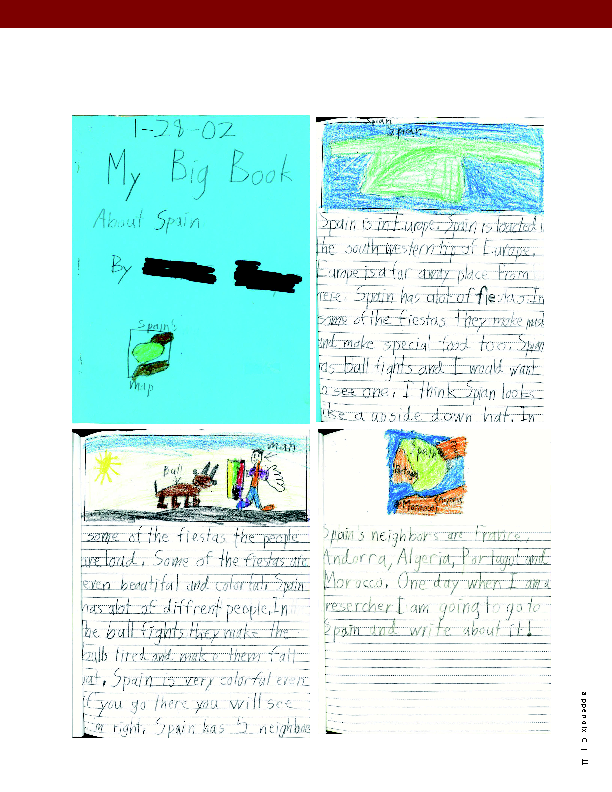 1-28-02
My Big Book
About Spain
By
Spain's
map
Spain
Spain
Spain is in Europe. Spain is located
the south western tip of Europe.
Europe is a far away place from
here. Spain has alot of fiestas. In
some of the fiestas they make
and make special food too. Spain
has bull fights and I would want
to see one. I think Spian looks
like a upside down hat. In
Bull
man
some of the fiestas the people
are loud. Some of the fiestas are
even beautiful and colorful. Spain
has alot of diffrent people. In
the bull fights they make the
bulls tired and make them fall
out. Spain is very colorful even
if you go there you will see
I'm right. Spain has 5 neighbors
Spain
Morocco
Spain's neighbors are France,
Andorra, Algeria, Portugal and
Morocco. One day when I am a
resercher I am going to go to
Spain and write about it!
appendix C | 11